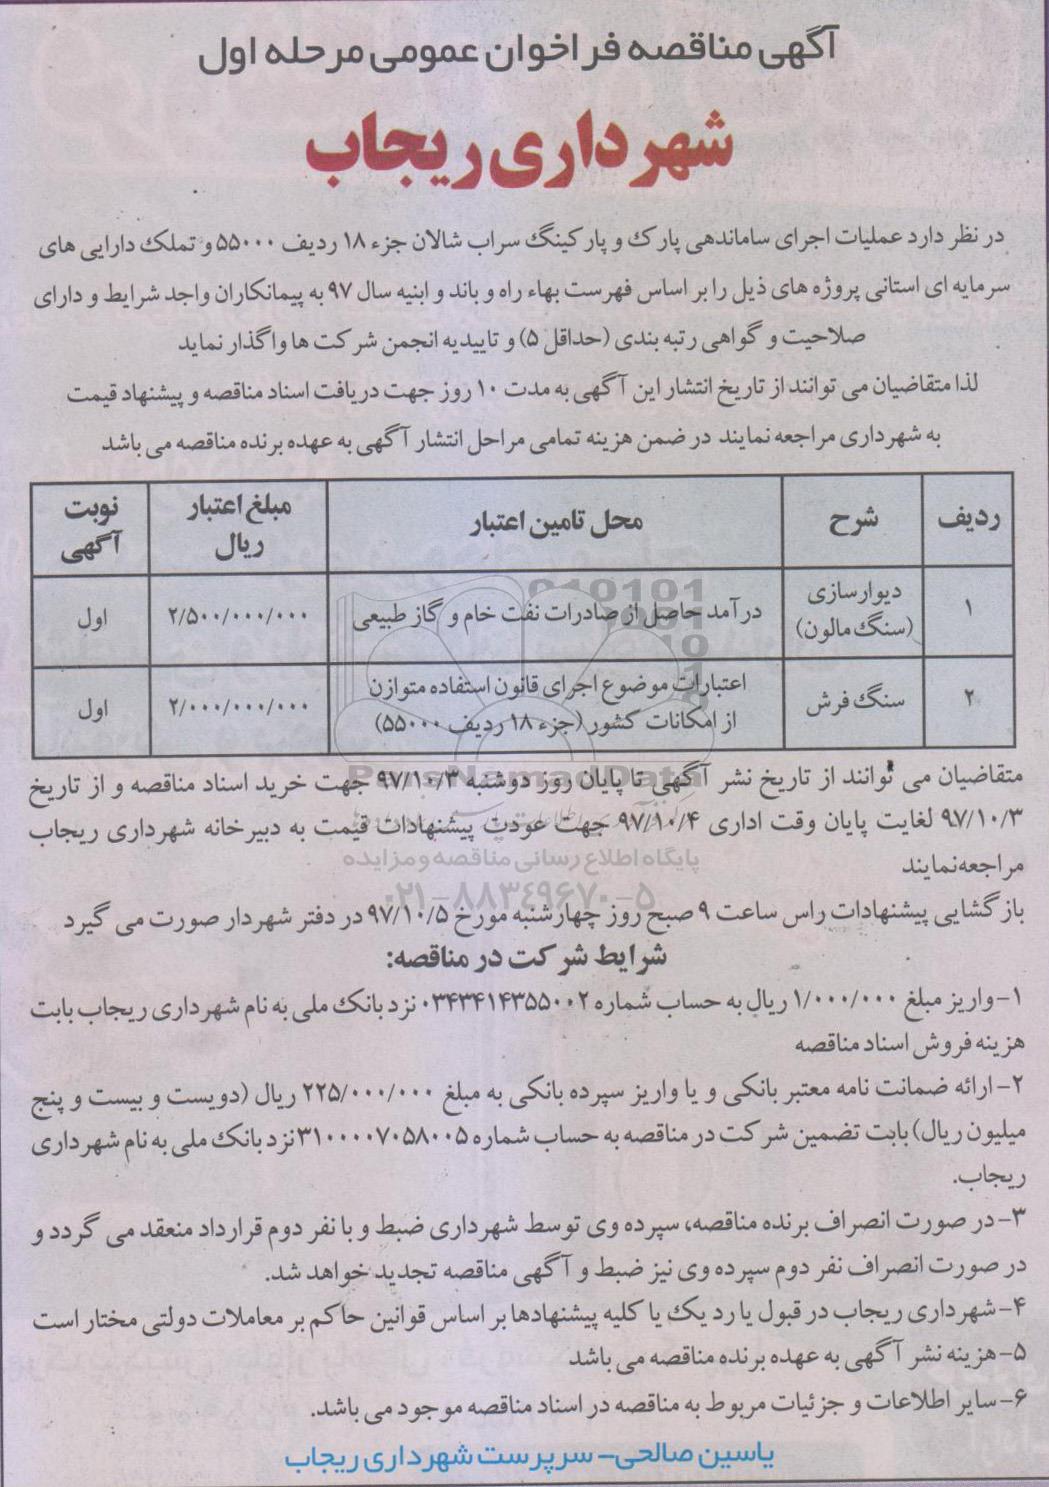 آگهی مناقصه فراخوان عمومی مرحله اول
شهرداری ریجاب
در نظر دارد عملیات اجرای ساماندهی پارک و پارکینگ سراب شالان جزء ۱۸ ردیف ۵۵۰۰۰ و تملک دارایی های
سرمایه ای استانی پروژه های ذیل را بر اساس فهرست بهاء راه و باند و ابنیه سال ۹۷ به پیمانکاران واجد شرایط و دارای
صلاحیت و گواهی رتبه بندی (حداقل ۵) و تاییدیه انجمن شرکت ها واگذار نماید
لذا متقاضیان می توانند از تاریخ انتشار این آگهی به مدت ۱۰ روز جهت دریافت اسناد مناقصه و پیشنهاد قیمت
به شهرداری مراجعه نمایند در ضمن هزینه تمامی مراحل انتشار آگهی به عهده برنده مناقصه می باشد
ردیف شرح محل تامین اعتبار مبلغ اعتبار ریال نوبت آگهی
۱ دیوارسازی (سنگ مالون) درآمد حاصل از صادرات نفت خام و گاز طبیعی ۲/۵۰۰/۰۰۰/۰۰۰ اول
۲ سنگ فرش اعتبارات موضوع اجرای قانون استفاده متوازن از امکانات کشور (جزء ۱۸ ردیف ۵۵۰۰۰) ۲/۰۰۰/۰۰۰/۰۰۰ اول
متقاضیان می توانند از تاریخ نشر آگهی تا پایان روز دوشنبه ۹۷/۱۰/۳ جهت خرید اسناد مناقصه و از تاریخ
۹۷/۱۰/۳ لغایت پایان وقت اداری ۹۷/۱۰/۴ جهت عودت پیشنهادات قیمت به دبیرخانه شهرداری ریجاب
مراجعه‌نمایند
بازگشایی پیشنهادات راس ساعت ۹ صبح روز چهارشنبه مورخ ۹۷/۱۰/۵ در دفتر شهردار صورت می گیرد
شرایط شرکت در مناقصه:
۱- واریز مبلغ ۱/۰۰۰/۰۰۰ ریال به حساب شماره ۰۳۴۳۴۱۴۳۵۵۰۰۲ نزد بانک ملی به نام شهرداری ریجاب بابت
هزینه فروش اسناد مناقصه
۲- ارائه ضمانت نامه معتبر بانکی و یا واریز سپرده بانکی به مبلغ ۲۲۵/۰۰۰/۰۰۰ ریال (دویست و بیست و پنج
میلیون ریال) بابت تضمین شرکت در مناقصه به حساب شماره ۳۱۰۰۰۰۷۰۵۸۰۰۵ نزد بانک ملی به نام شهرداری
ریجاب.
۳- در صورت انصراف برنده مناقصه، سپرده وی توسط شهرداری ضبط و با نفر دوم قرارداد منعقد می گردد و
در صورت انصراف نفر دوم سپرده وی نیز ضبط و آگهی مناقصه تجدید خواهد شد.
۴- شهرداری ریجاب در قبول یا رد یک یا کلیه پیشنهادها بر اساس قوانین حاکم بر معاملات دولتی مختار است
۵- هزینه نشر آگهی به عهده برنده مناقصه می باشد
۶- سایر اطلاعات و جزئیات مربوط به مناقصه در اسناد مناقصه موجود می باشد.
یاسین صالحی- سرپرست شهرداری ریجاب
ParsNamadData
پایگاه اطلاع رسانی مناقصه و مزایده
۰۲۱-۸۸۳۴۹۶۷۰-۵